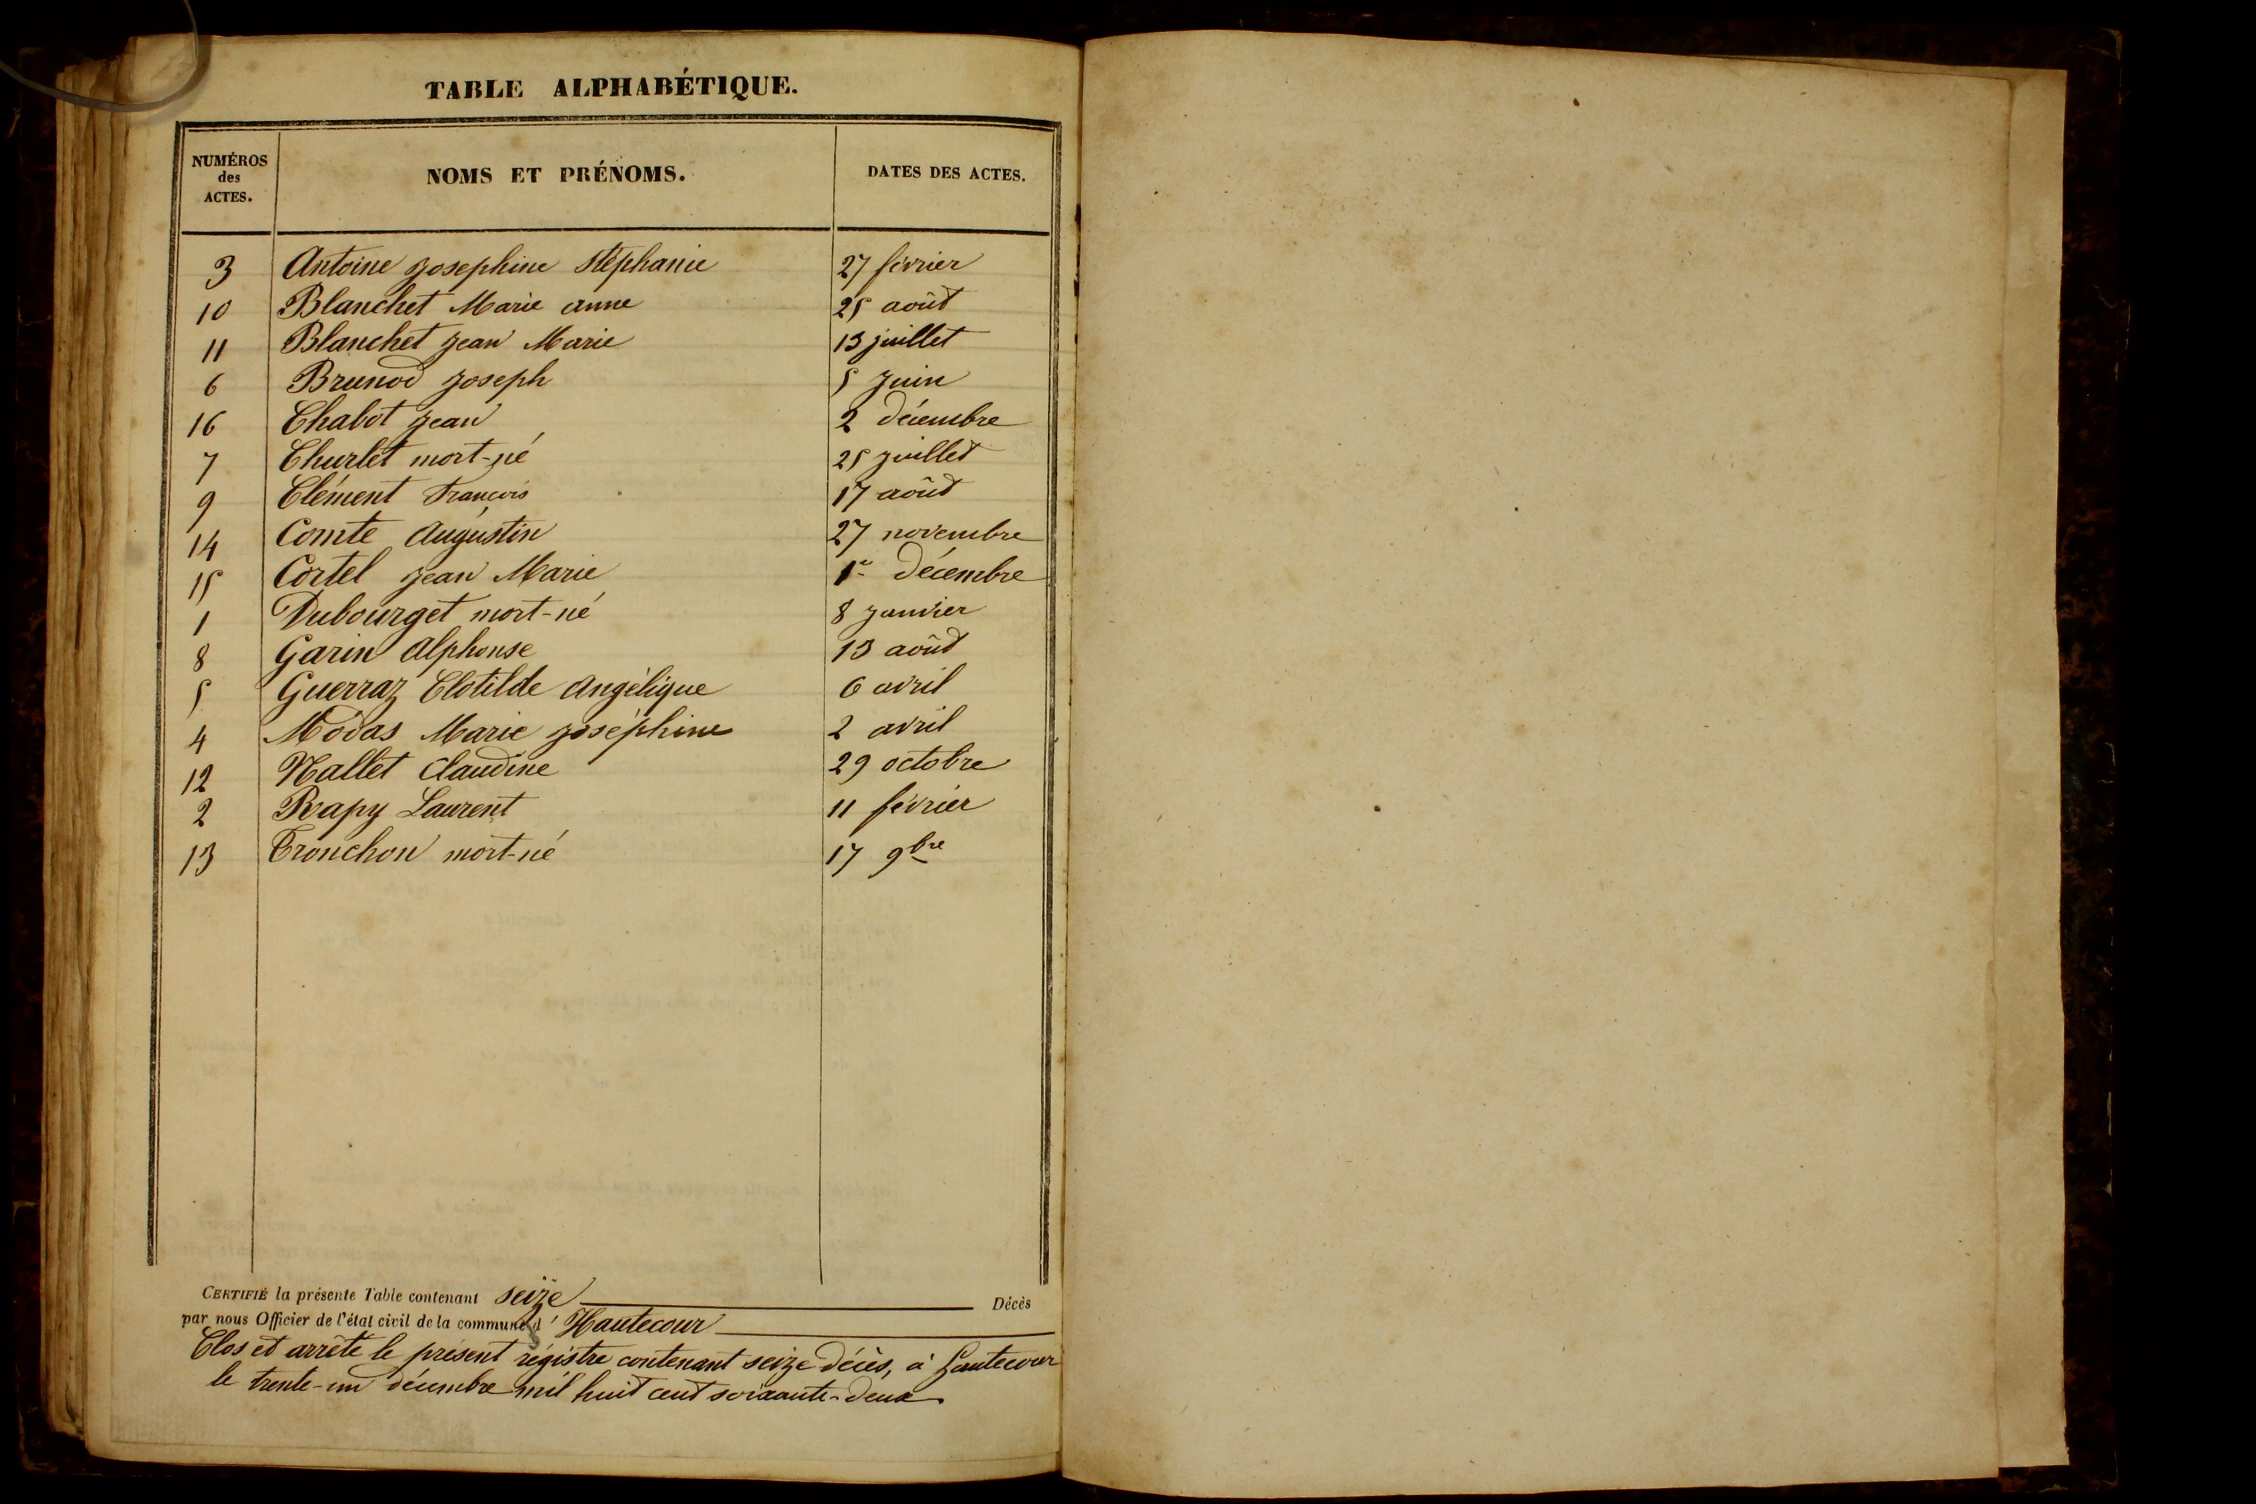 TABLE ALPHABÉTIQUE.
NUMÉROS des ACTES. NOMS ET PRÉNOMS. DATES DES ACTES.
3 Antoine Josephine Stéphanie 27 février
10 Blanchet Marie anne 25 août
11 Blanchet Jean Marie 13 juillet
6 Brunod Joseph 5 Juin
16 Chabot Jean 2 décembre
7 Churlet mort-né 25 Juillet
9 Clément François 17 août
14 Comte Augustin 27 novembre
15 Cortel Jean Marie 1er décembre
1 Dubourget mort-né 8 Janvier
8 Garin Alphonse 13 août
5 Guerraz Clotilde Angélique 6 avril
4 Modas Marie Joséphine 2 avril
12 Nallet Claudine 29 octobre
2 Rapy Laurent 11 février
13 Tronchon mort-né 17 9bre
CERTIFIÉ la présente Table contenant seize Décès
par nous Officier de l'état civil de la commune d' Hautecour
Clos et arrêté le présent régistre contenant seize décès, à hautecour
le trente-un décembre mil huit cent soixante-deux